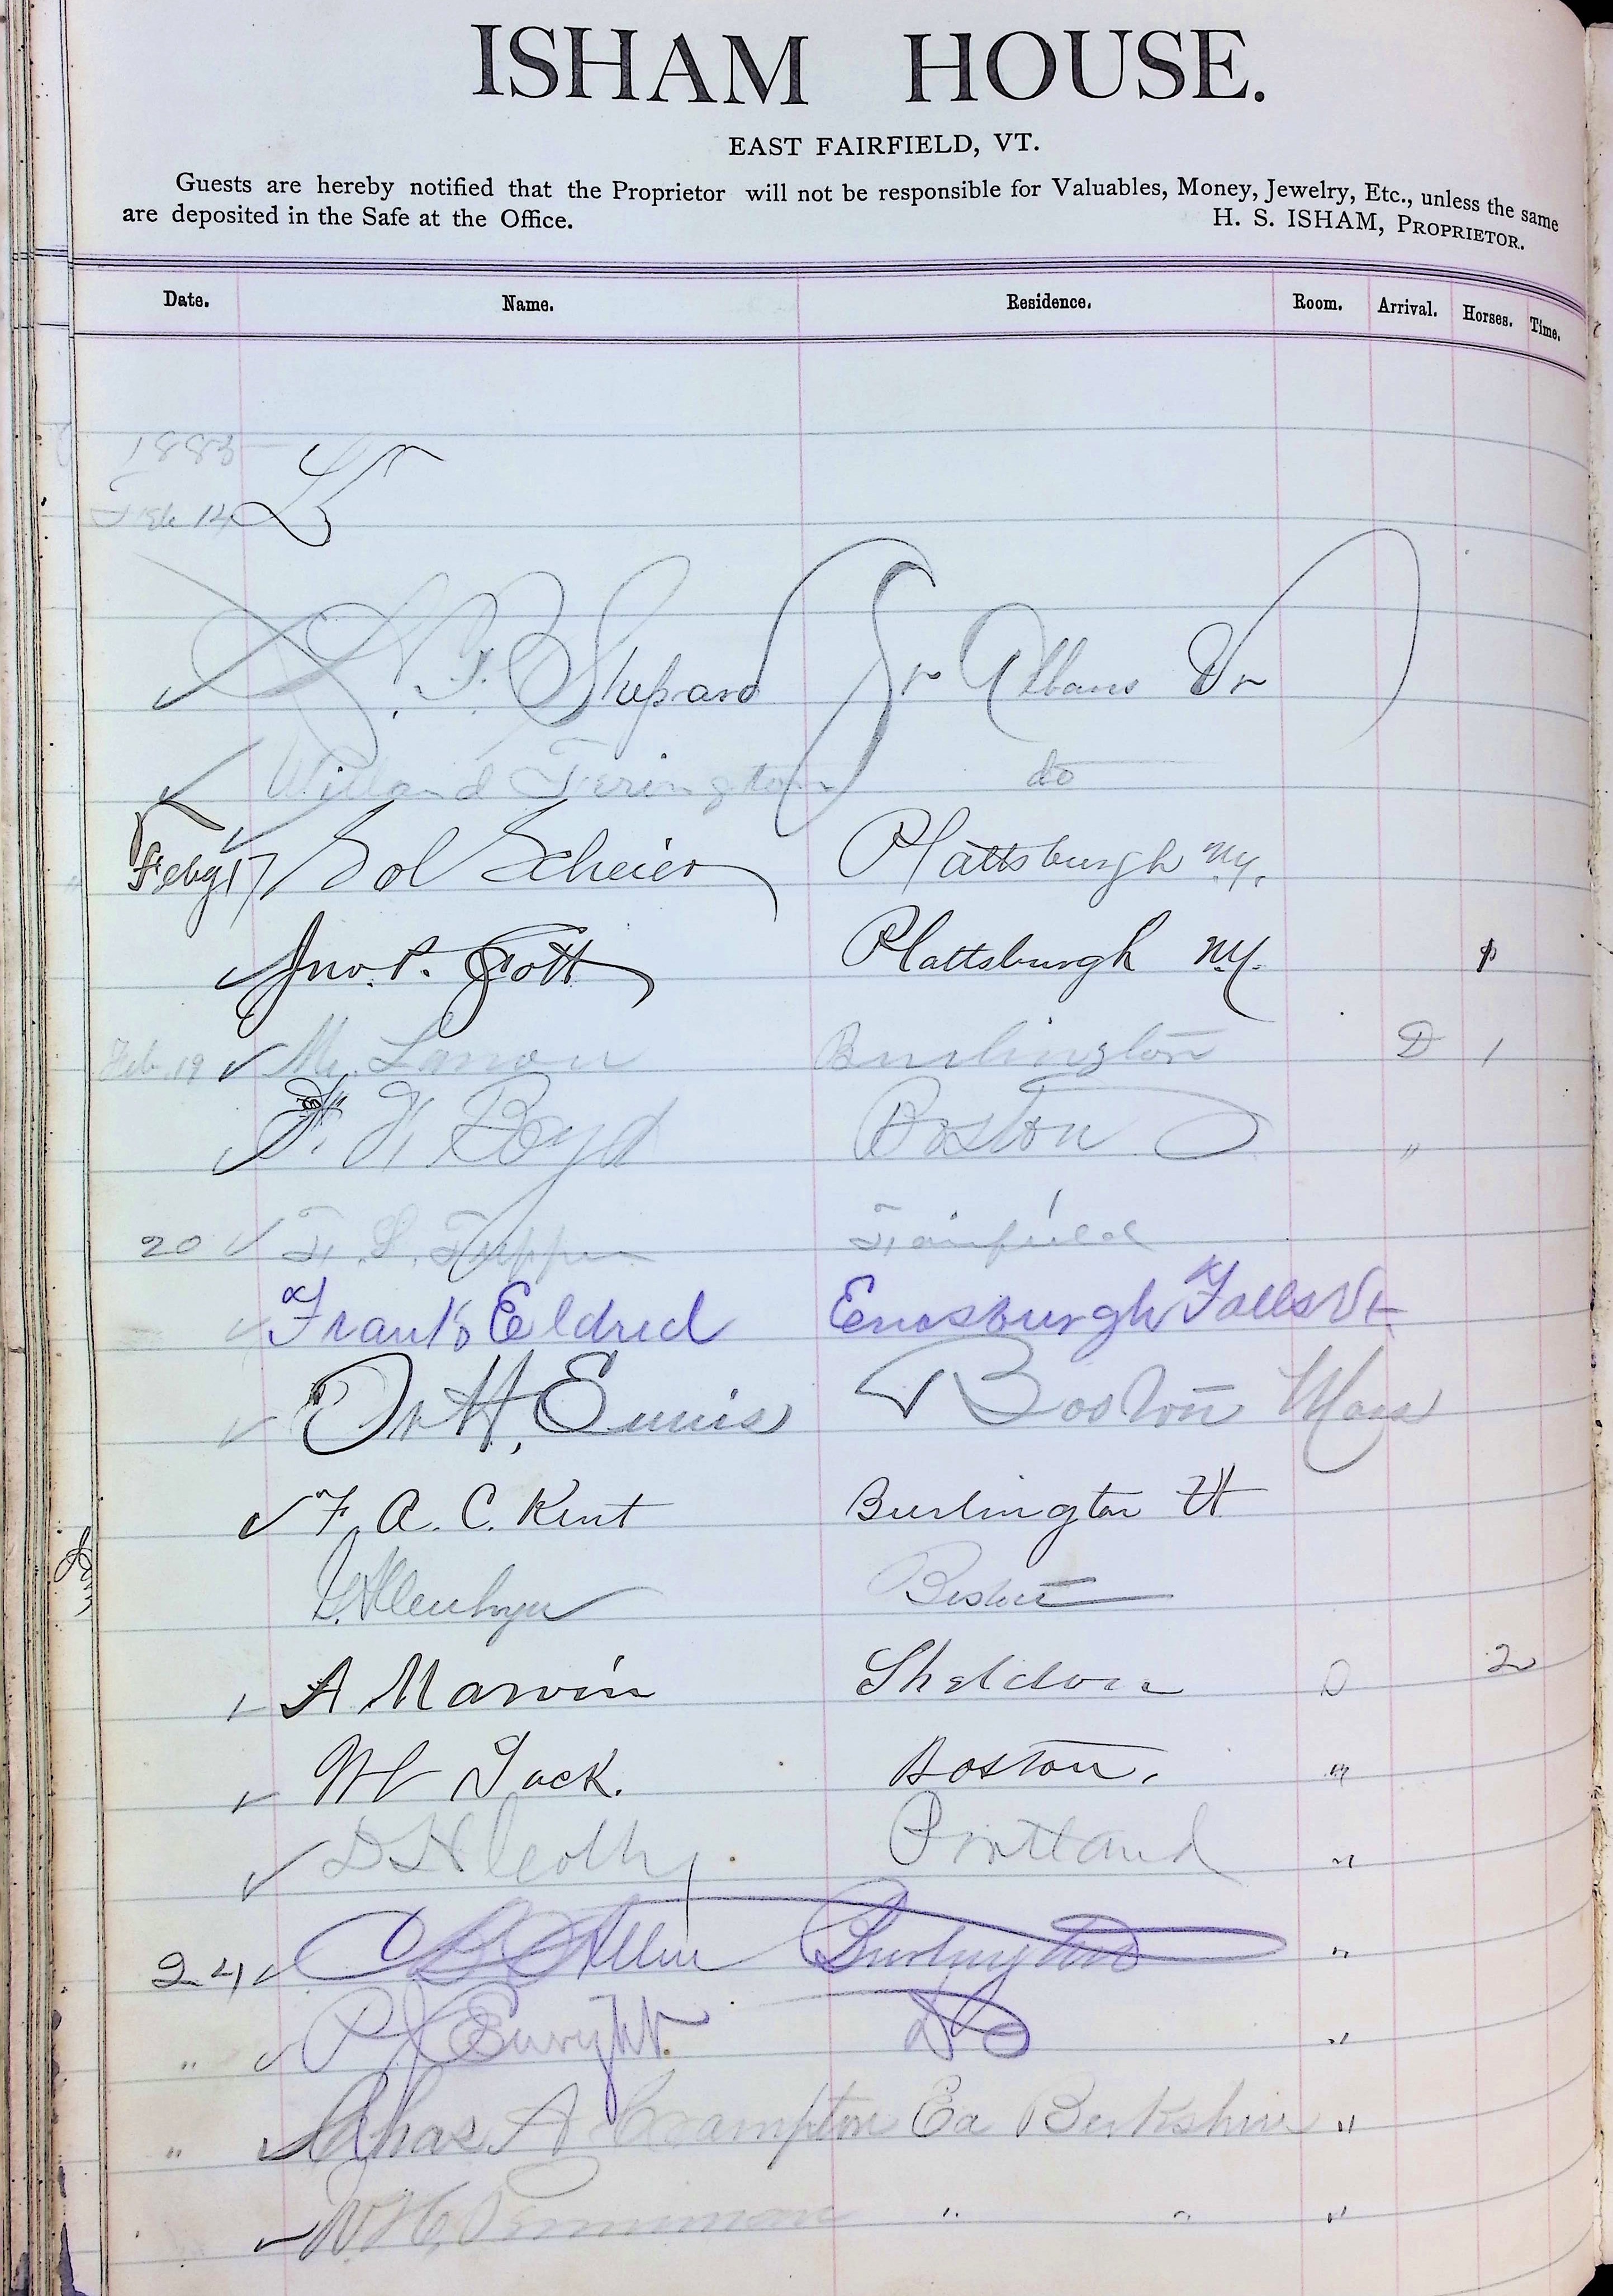 ISHAM HOUSE.
EAST FAIRFIELD, VT.
Guests are hereby notified that the Proprietor will not be responsible for Valuables, Money, Jewelry, Etc., unless the same
are deposited in the Safe at the Office. H. S. ISHAM, PROPRIETOR.
Date. Name. Residence. Room. Arrival. Horses. Time.
1888
Feb 14
Shepard St Albans Vt
✓ Willand Ferington do
Feby 17 ✓ Sol Scheier Plattsburgh N.Y.
✓ Jno. P. Gott Plattsburgh N.Y.
Feb. 19 ✓ Mr. Burlington D 1
✓ F. H. Boyd Boston "
20 ✓ F. S. Fairfield
✓ Frank Eldred Enosburgh Falls Vt
✓ Dr H. Ennis Boston Mass
✓ F. A. C. Kent Burlington Vt
Boston
✓ A Marvin Sheldon D 2
✓ Jack. Boston. "
✓ D H Portland "
24 ✓ Allen Burlington "
" ✓ P J Enright Do "
" ✓ Chas A Crampton Ea Berkshire "
✓ W. H. " " "